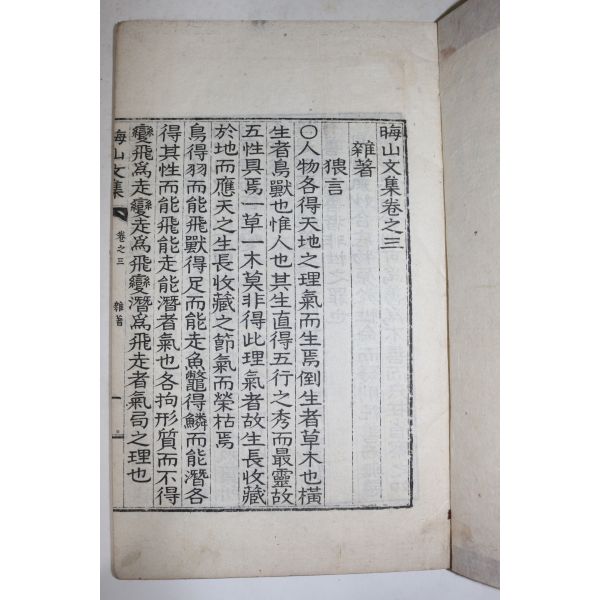 晦山文集卷之三
雜著
猥言
〇人物各得天地之理氣而生焉倒生者草木也橫
生者鳥獸也惟人也其生直得五行之秀而最靈故
五性具焉一草一木莫非得此理氣者故生長收藏
於地而應天之生長收藏之節氣而榮枯焉
鳥得羽而能飛獸得足而能走魚鼈得鱗而能潛各
得其性而能飛能走能潛者氣也各拘形質而不得
變飛爲走變走爲飛變潛爲飛走者氣局之理也
晦山文集
卷之三
雜著
一